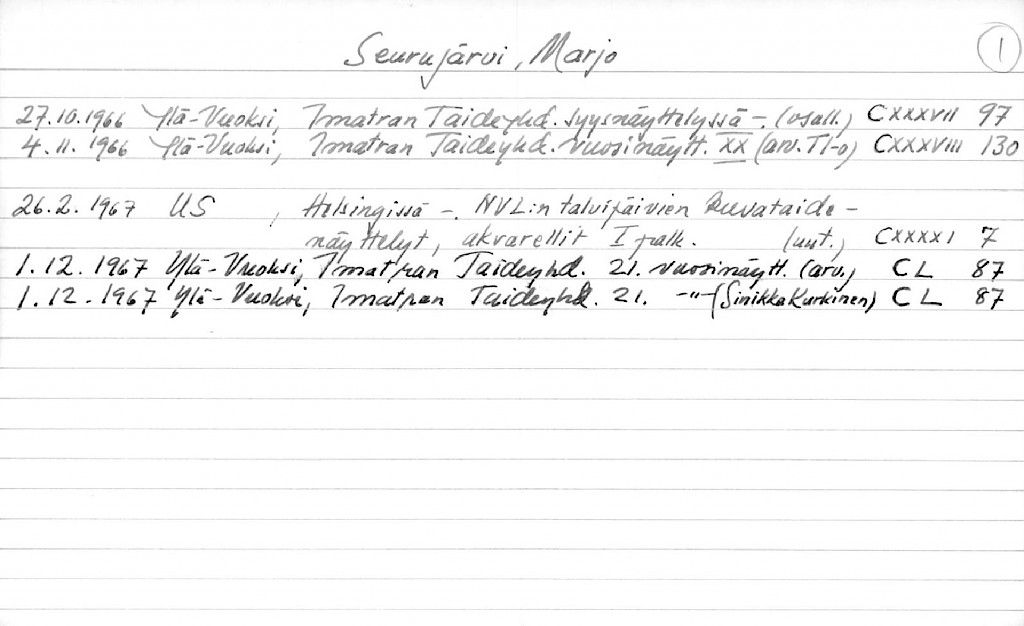 Seurujärvi, Marjo 1
27.10.1966 Ylä-Vuoksi, Imatran Taideyhd. syysnäyttelyssä -. (osall.) CXXXVII 97
4.11.1966 Ylä-Vuoksi, Imatran Taideyhd. vuosinäytt. XX (arv. TI-o) CXXXVIII 130
26.2.1967 US , Helsingissä -. NVL:n talvipäivien kuvataide-
näyttelyt, akvarellit I palk. (uut.) CXXXXI 7
1.12.1967 Ylä-Vuoksi, Imatran Taideyhd. 21. vuosinäytt. (arv.) CL 87
1.12.1967 Ylä-Vuoksi, Imatran Taideyhd. 21. -"- (Sinikka Kurkinen) CL 87